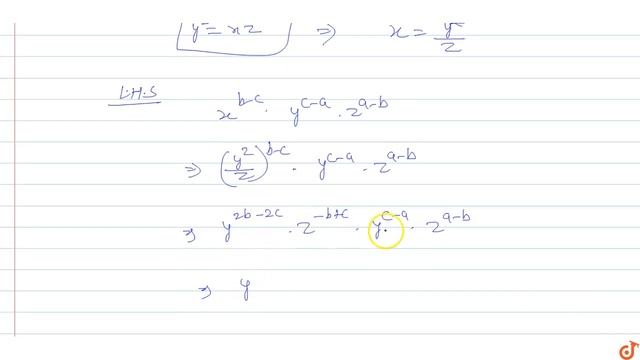 y² = xz ⇒ x = y²/z
L.H.S
x^(b-c) · y^(c-a) · z^(a-b)
⇒ (y²/z)^(b-c) · y^(c-a) · z^(a-b)
⇒ y^(2b-2c) · z^(-b+c) · y^(c-a) · z^(a-b)
⇒ y